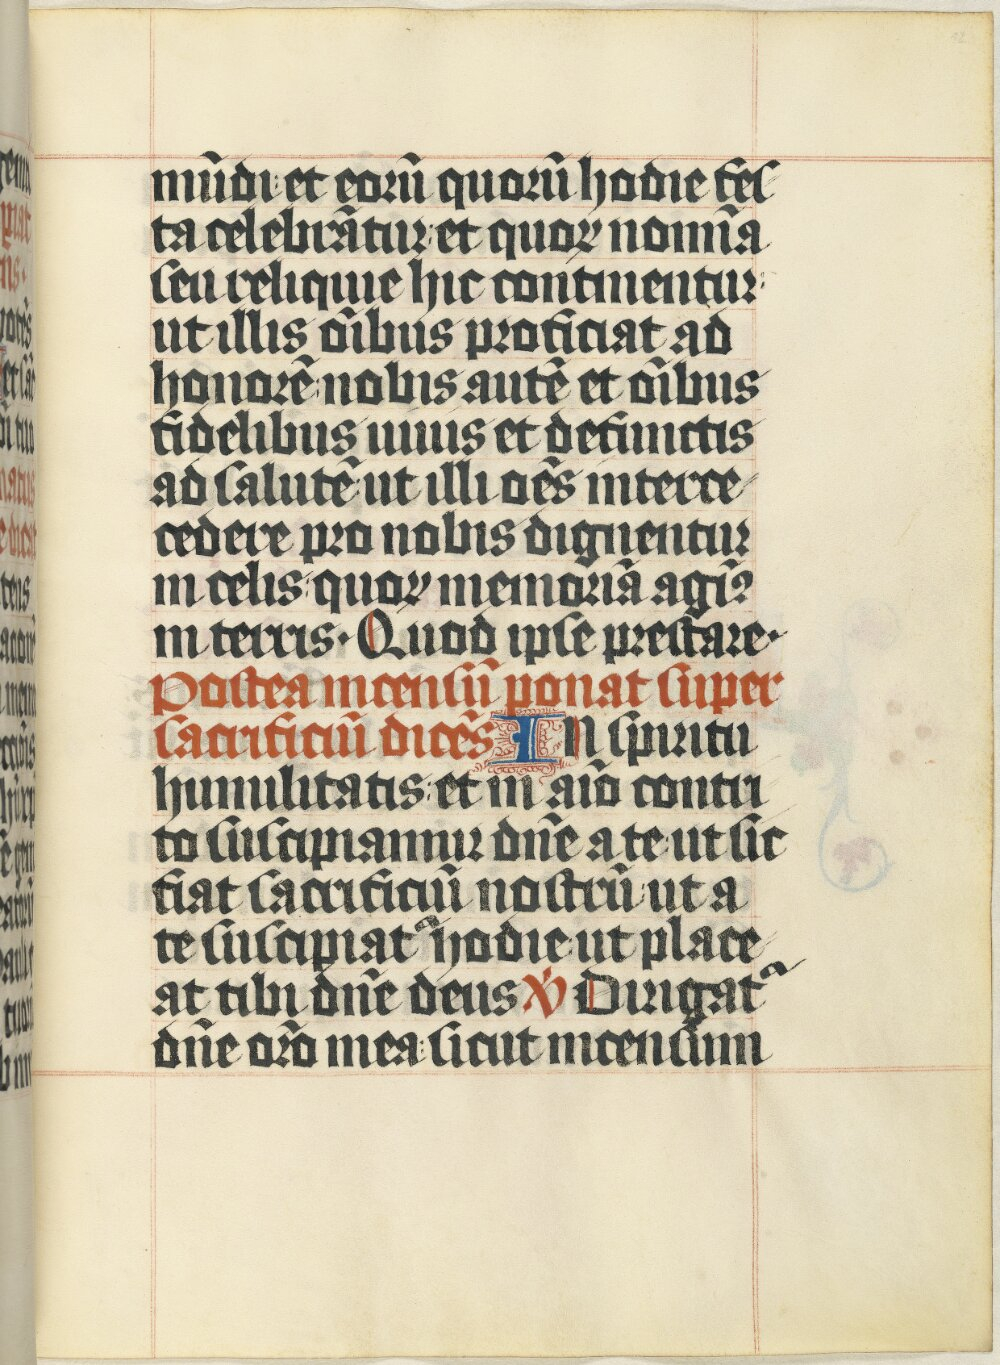 mūdi: et eorū quorū hodie fes
ta celebrāt̄ur: et quoꝝ nomīa
seu reliquie hic continentur:
ut illis oībus proficiat ad
honorē: nobis autē et oībus
fidelibus uiuis et defunctis
ad salutē: ut illi oēs interce
cedere pro nobis dignentur
in celis: quoꝝ memoriā agim᷒
in terris. Quod ipse prestare.
Postea incensū ponat super
sacrificiū dicēs IN sp̄iritu
humilitatis: et in aīo contri
to suscipiamur dn̄e a te: ut sic
fiat sacrificiū nostrū: ut a
te suscipiat᷒ hodie: ut place
at tibi dn̄e deus ℣ Dirigat᷒
dn̄e or̄o mea: sicut incensum